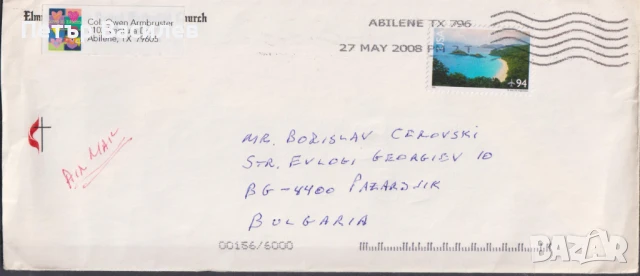 Elm
Church
Col. Owen Armbruster
Abilene, TX 79605
Петър Василев
ABILENE TX 796
27 MAY 2008
USA
94
AIR MAIL
MR. BORISLAV CEROVSKI
STR. EVLOGI GEORGIEV 10
BG-4400 PAZARDJIK
BULGARIA
00156/6000
BAZAR